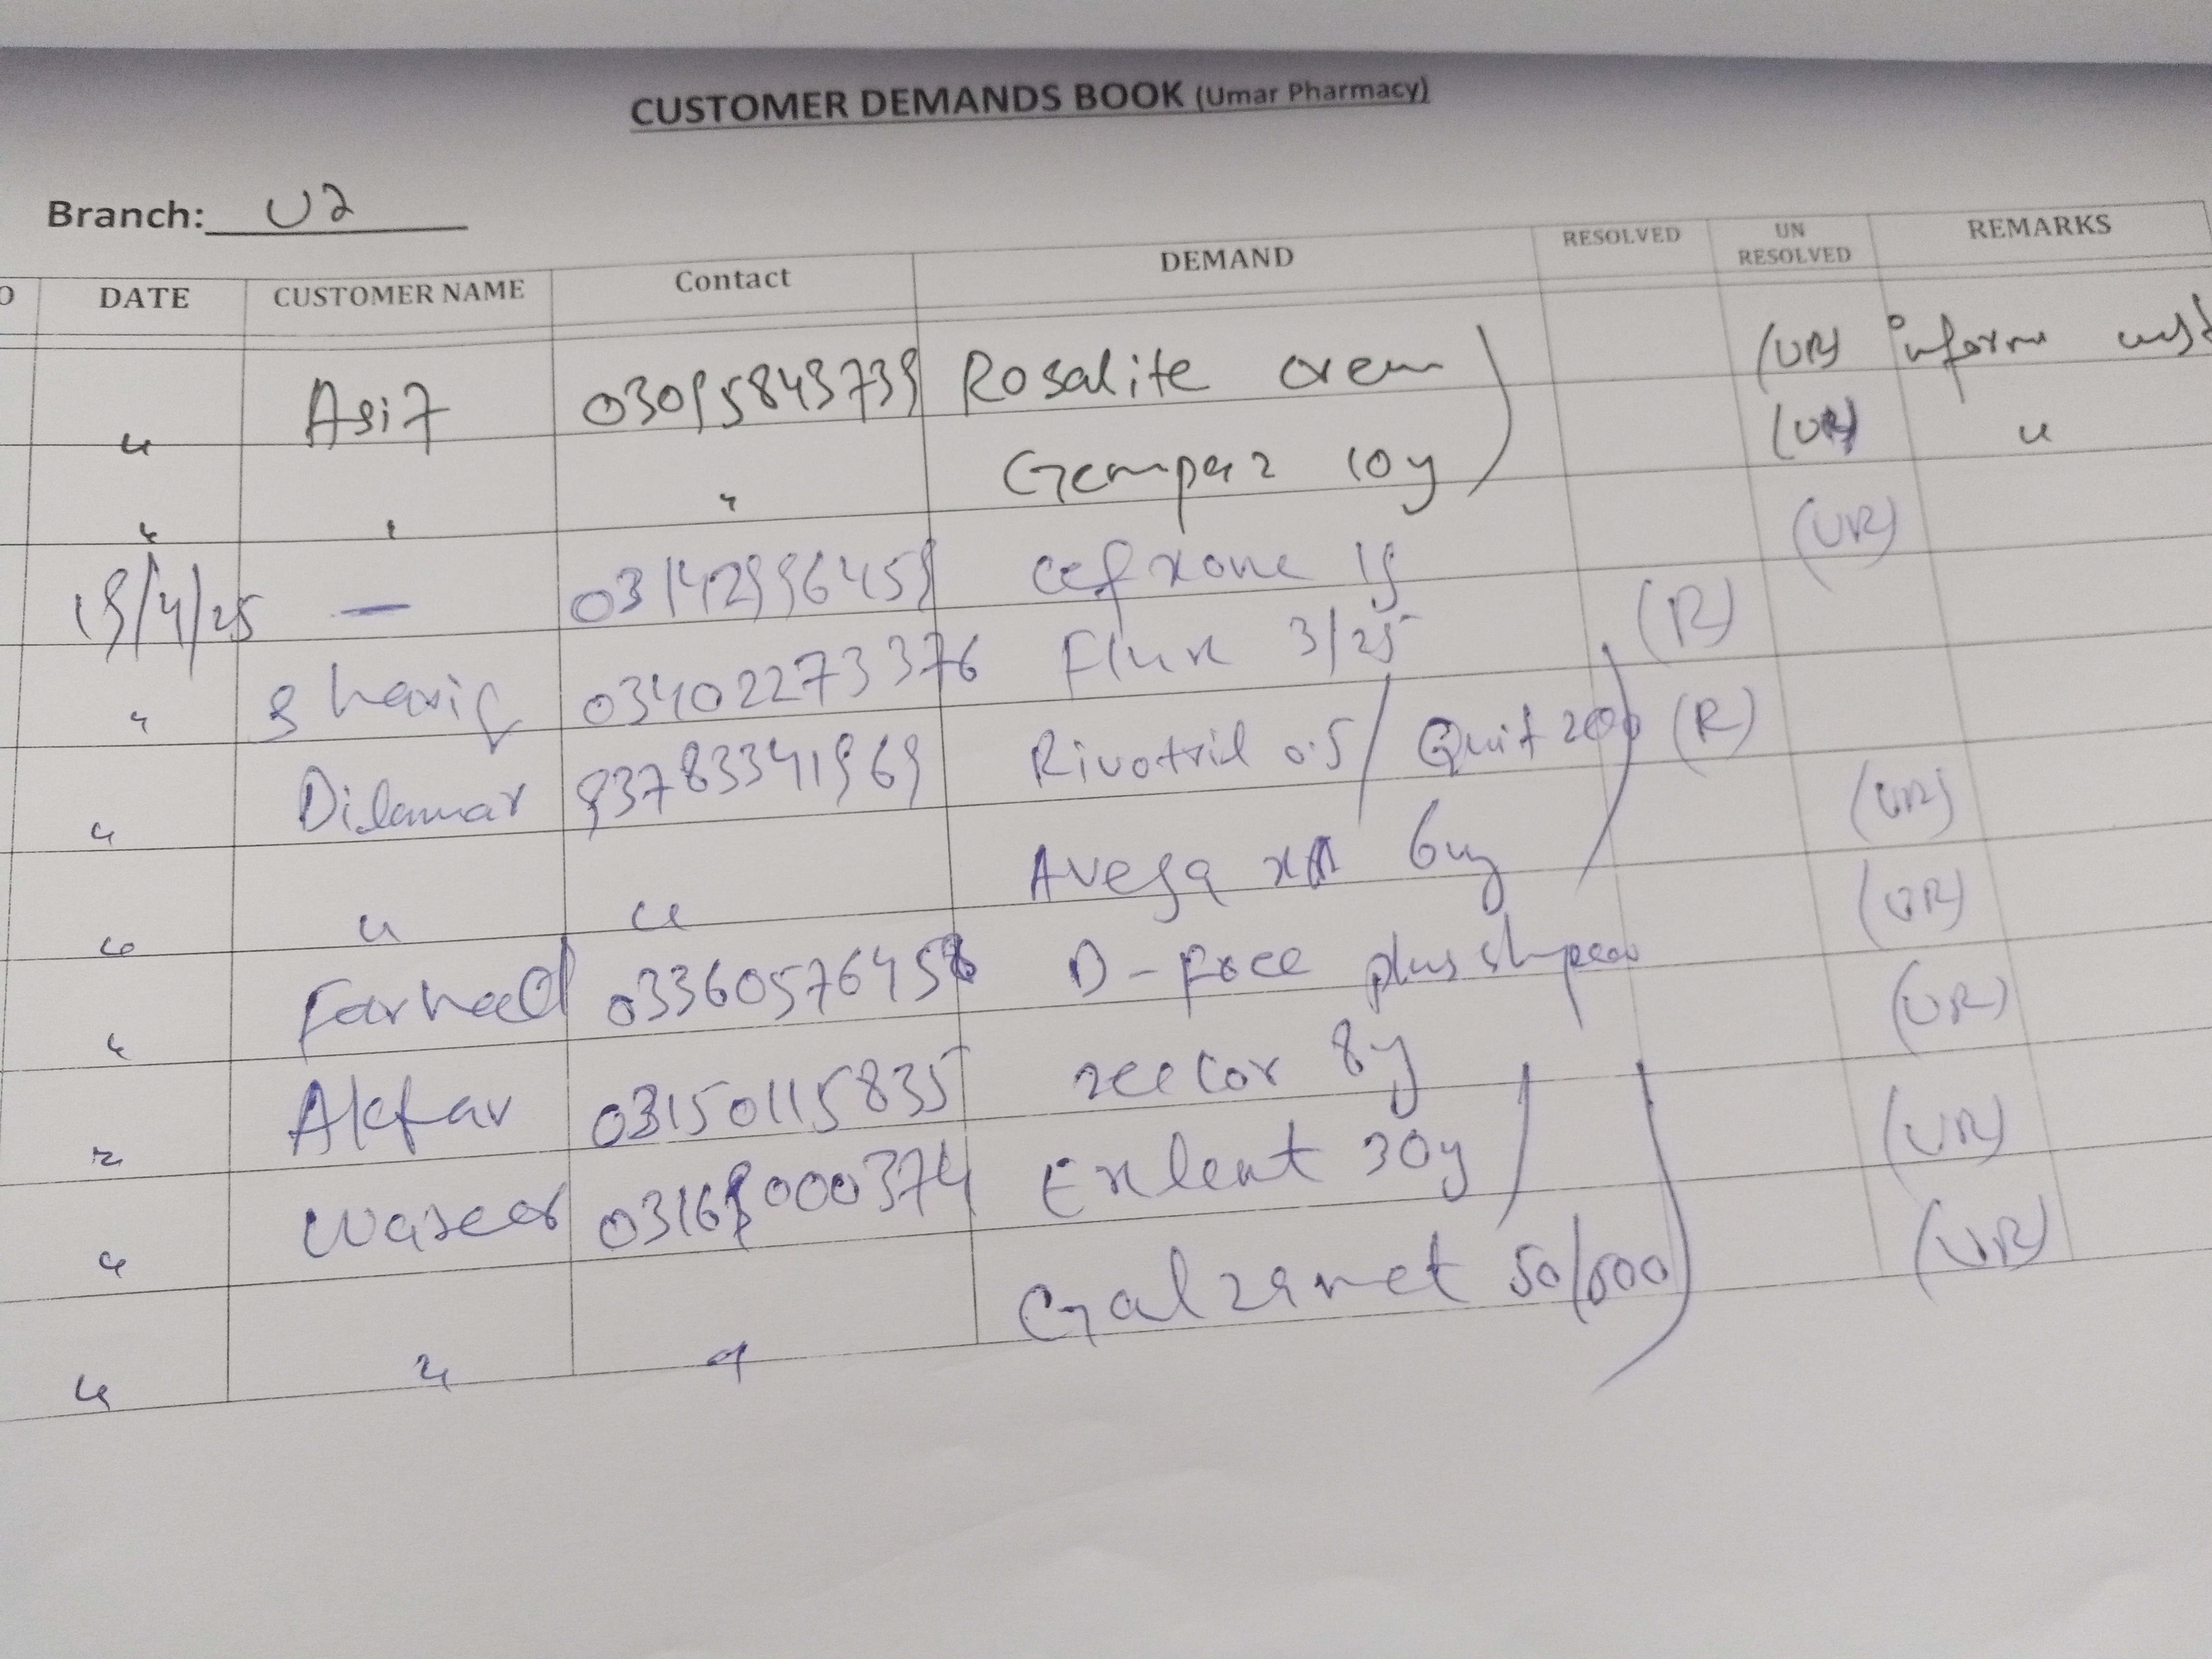 CUSTOMER DEMANDS BOOK (Umar Pharmacy)
Branch: U2
O DATE CUSTOMER NAME Contact DEMAND RESOLVED UN RESOLVED REMARKS
" Asif 03095843739 Rosalite crem (UR) inform
" " " Gempaz 10g (UR) "
19/4/25 — 03142996459 cefxone 1g (UR)
" Sharif 03402273376 Flux 3/25 (R)
" Dilawar 93783341969 Rivotril 0.5 / Quit 200 (R)
" " " 6mg (UR)
" Farhad 0336057645 D- plus (UR)
" Akfar 03150115835 zeecor 8g (UR)
" 0316 000374 Exlent 30g (UR)
" " " Galzamet 50/500 (UR)